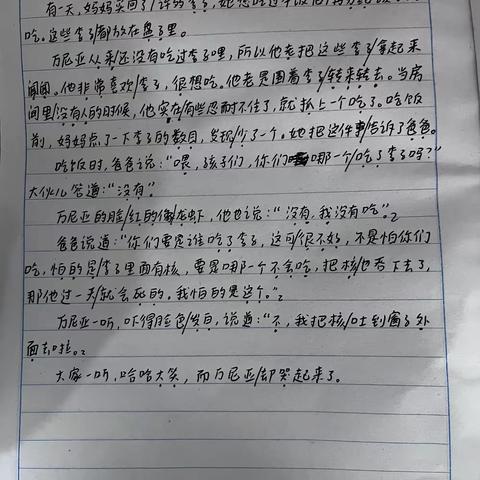 有一天，妈妈买回了许的李子，她想吃过午饭
吃。这些李子都放在盘子里。
万尼亚从来还没有吃过李子哩，所以他老把这些李子拿起来
闻闻。他非常喜欢李子，很想吃。他老是围着李子转来转去。当房
间里没有人的时候，他实在有些忍耐不住了，就抓上一个吃了。吃饭
前，妈妈点了一下李子的数目，发现少了一个。她把这件事告诉了爸爸。
吃饭时，爸爸说：“喂，孩子们，你们哪一个吃了李子吗？”
大伙儿答道：“没有”
万尼亚的脸红的像龙虾，他也说：“没有，我没有吃”。
爸爸说道：“你们要是谁吃了李子，这可很不好，不是怕你们
吃，怕的是李子里面有核，要是哪一个不会吃，把核也吞下去了，
那他过一天就会死的，我怕的是这个。”
万尼亚一听，吓得脸色发白，说道：“不，我把核吐到窗子外
面去啦。
大家一听，哈哈大笑，而万尼亚却哭起来了。